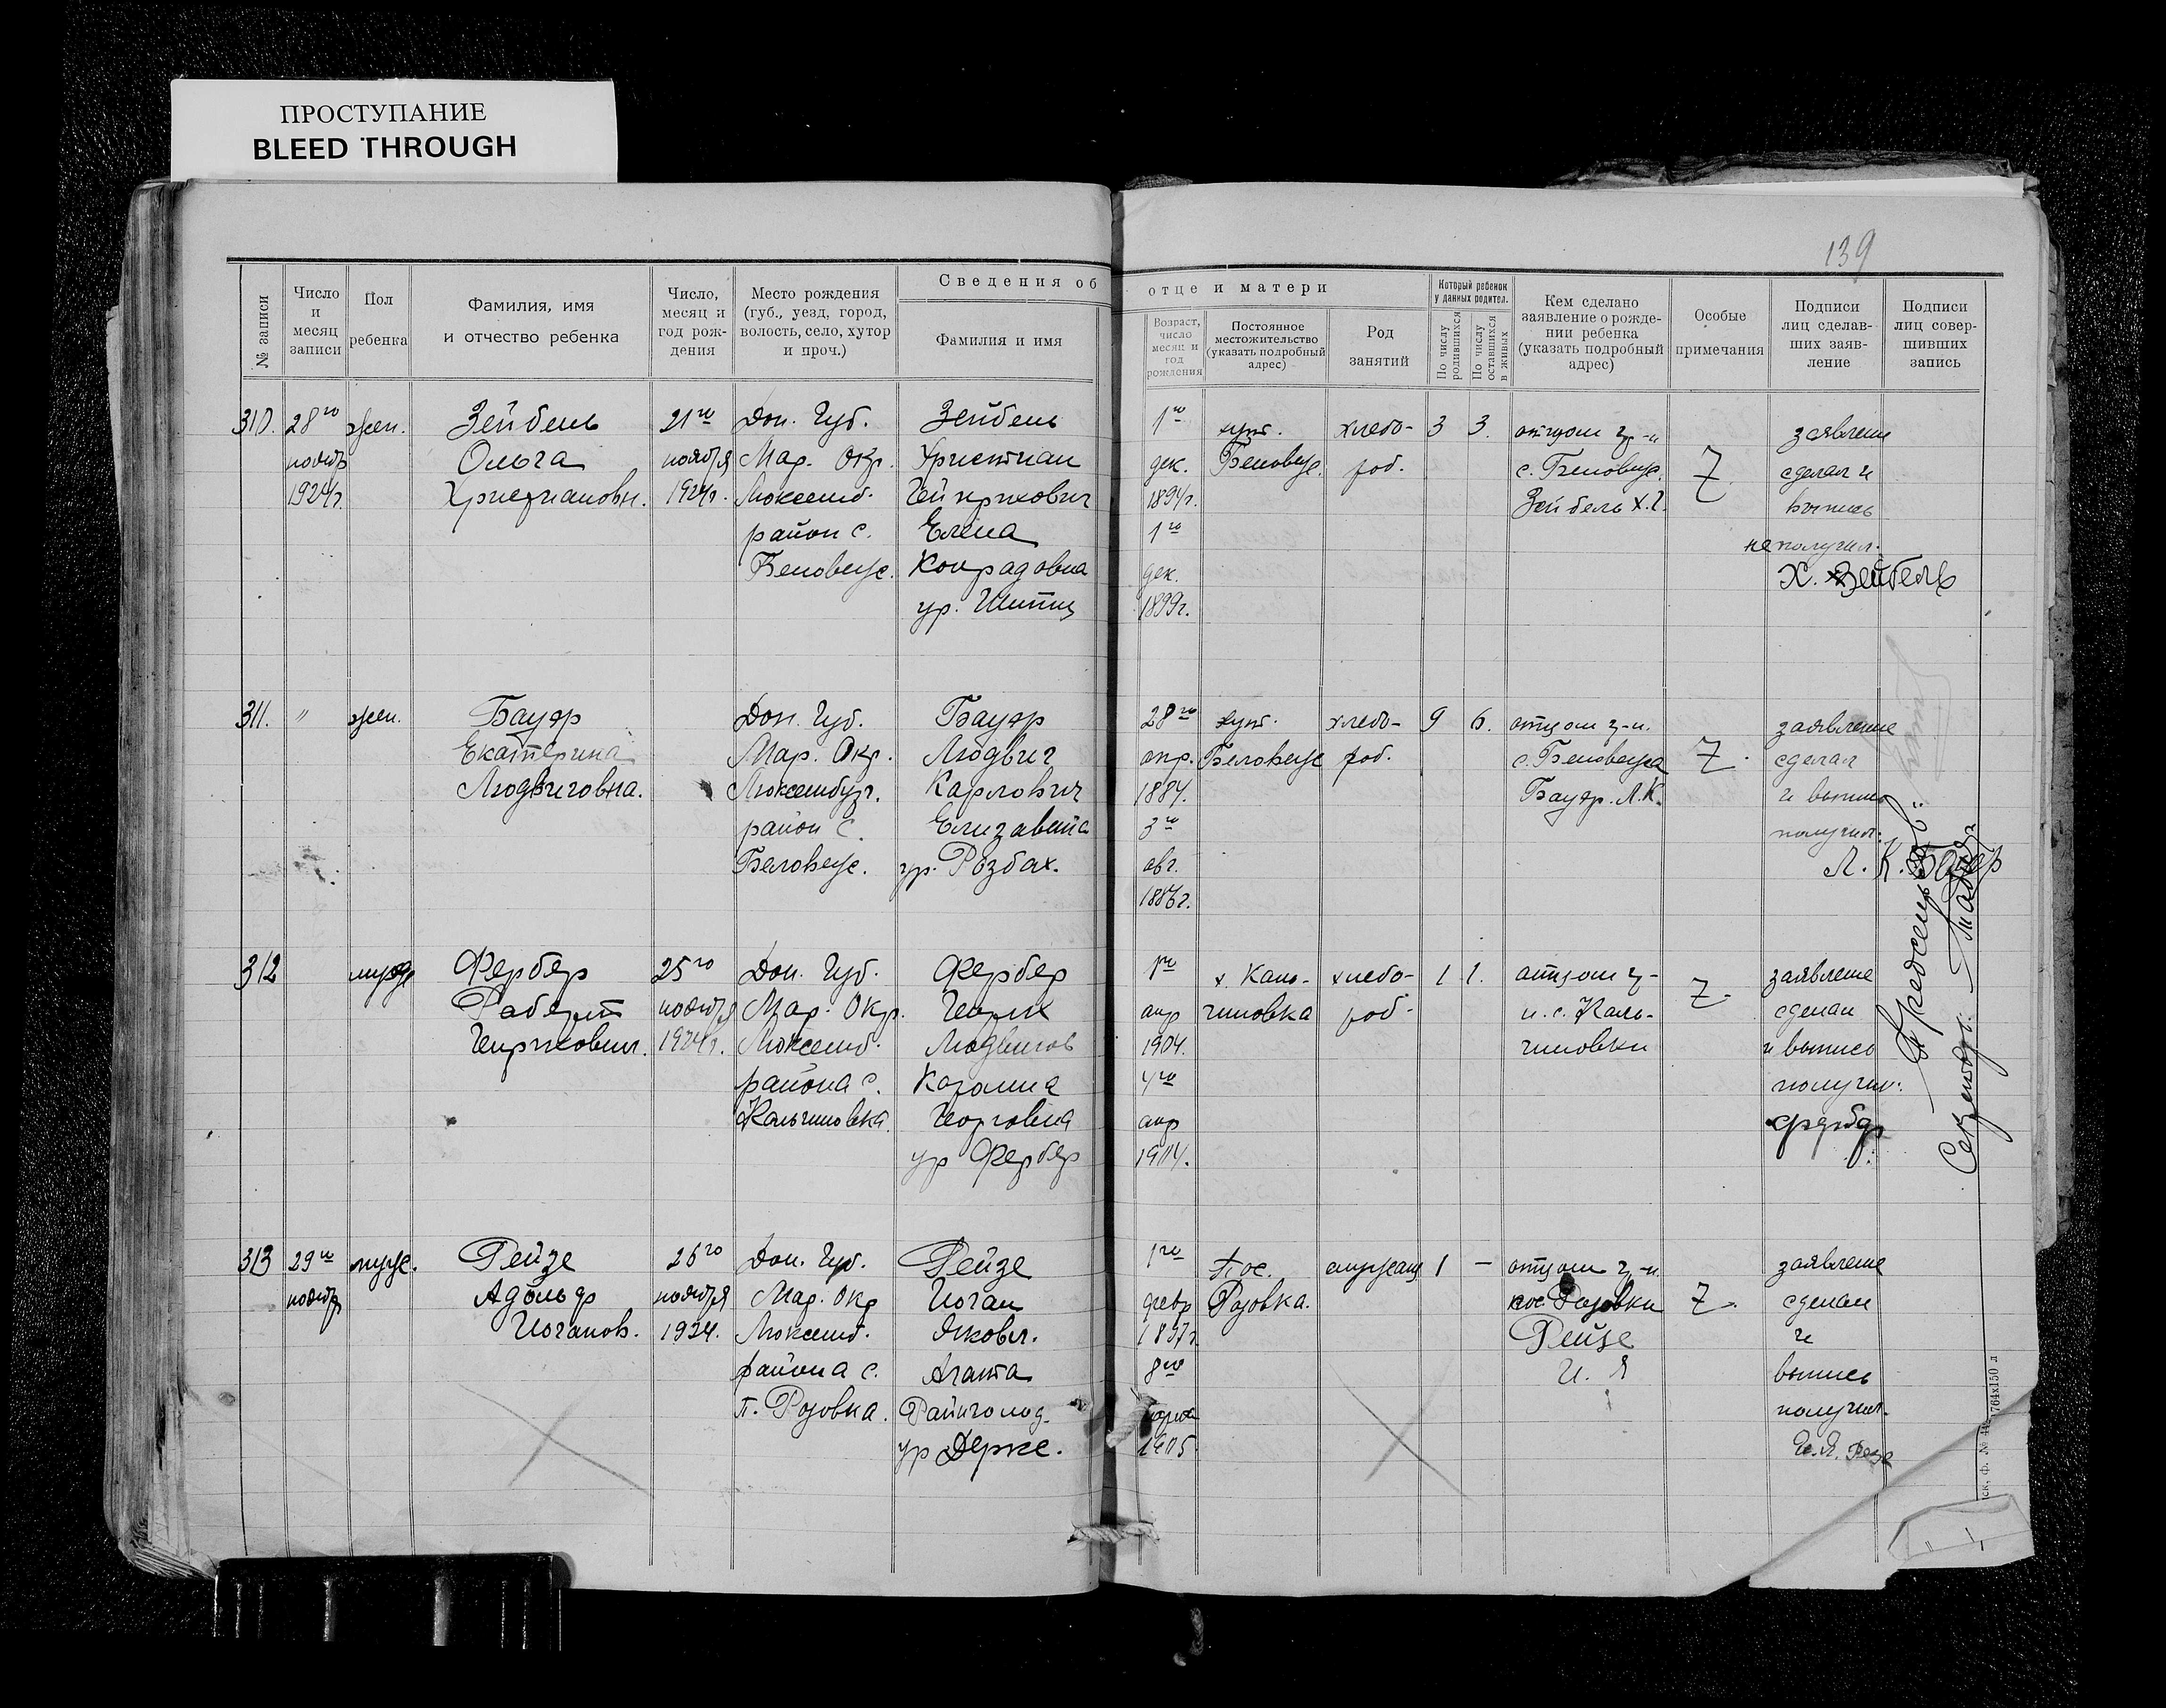 ПРОСТУПАНИЕ
BLEED THROUGH
139
Сведения об отце и матери
№ записи
Число и месяц записи
Пол ребенка
Фамилия, имя и отчество ребенка
Число, месяц и год рождения
Место рождения (губ., уезд, город, волость, село, хутор и проч.)
Фамилия и имя
Возраст, число месяц и год рождения
Постоянное местожительство (указать подробный адрес)
Род занятий
Который ребенок у данных родител.
По числу родившихся
По числу оставшихся в живых
Кем сделано заявление о рождении ребенка (указать подробный адрес)
Особые примечания
Подписи лиц сделавших заявление
Подписи лиц совершивших запись
310. 28го жен. Зейбель 21го Дон. Губ. Зейбель 1го хут. хлебо- 3 3. отцом гр-н заявление
ноября Ольга ноября Мар. Окр. Христиан дек. Беловеж. роб. с. Беловеж. Z сделал и
1924г. Христиановн. 1924г. Люксемб. Гейнрихович 1894г. Зейбель Х.Г. выпись
район с. Елена 1го не получил.
Беловеж. Конрадовна дек. Х. Зейбель
ур. 1899г.
311. " жен. Бауэр Дон. Губ. Бауэр 28го хут. хлебо- 9 6. отцом г-н. заявление
Екатерина Мар. Окр. Людвиг апр. Беловеж роб. с. Беловежа Z. сделал
Людвиговна. Люксембург. Карлович 1884. Бауэр. Л.К. и выпись
район с. Елизавета 3го получил.
Беловеж. ур. Розбах. авг. Л. К. Бауер
1886г.
312 Фербер 25го Дон. Губ. Фербер 1го х. Каль- хлебо- 1 1. отцом г- заявление
Роберт ноября Мар. Окр. апр чиновка роб. н. с. Каль- Z. сделал
1924г. Люксемб. Людвигов 1904. чиновки и выпись
района с. Каролина 4го получил.
Кальчиновка. Георговна апр
ур Фербер 1904.
313 29го муж. Рейзе 26го Дон. Губ. Рейзе 1го Пос. служащ 1 — отцом г-н. заявление
ноябр Адольф ноября Мар. Окр Иоган февр Розовка. пос. Розовки Z. сделал
Иоганов. 1924. Люксемб. Яковл. 1897г. Рейзе и
района с. Агата 8го И. Я выпись
п. Розовка. Райнголод. марта получил.
ур Дерке. 1905 И.Я. Резе
Секретарь:
764х150 л